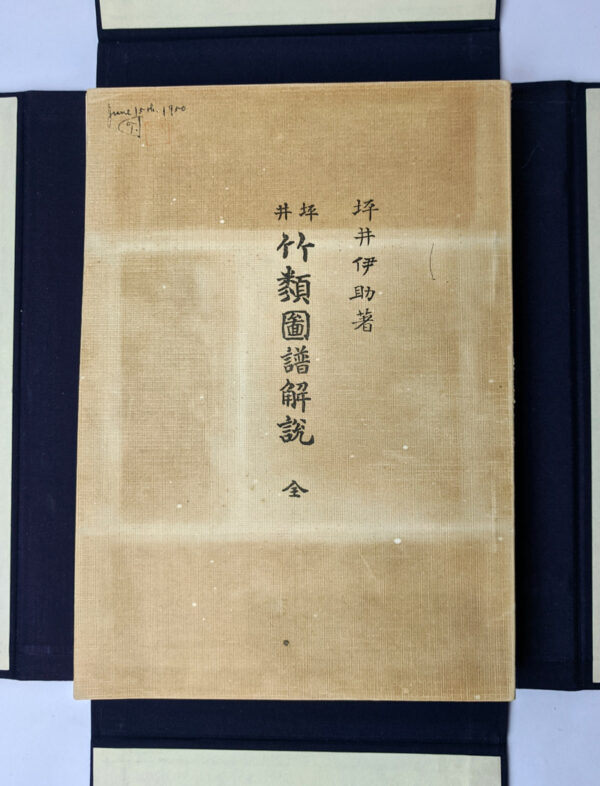 June 15th. 1950
坪井伊助著
坪井
竹類圖譜解說 全